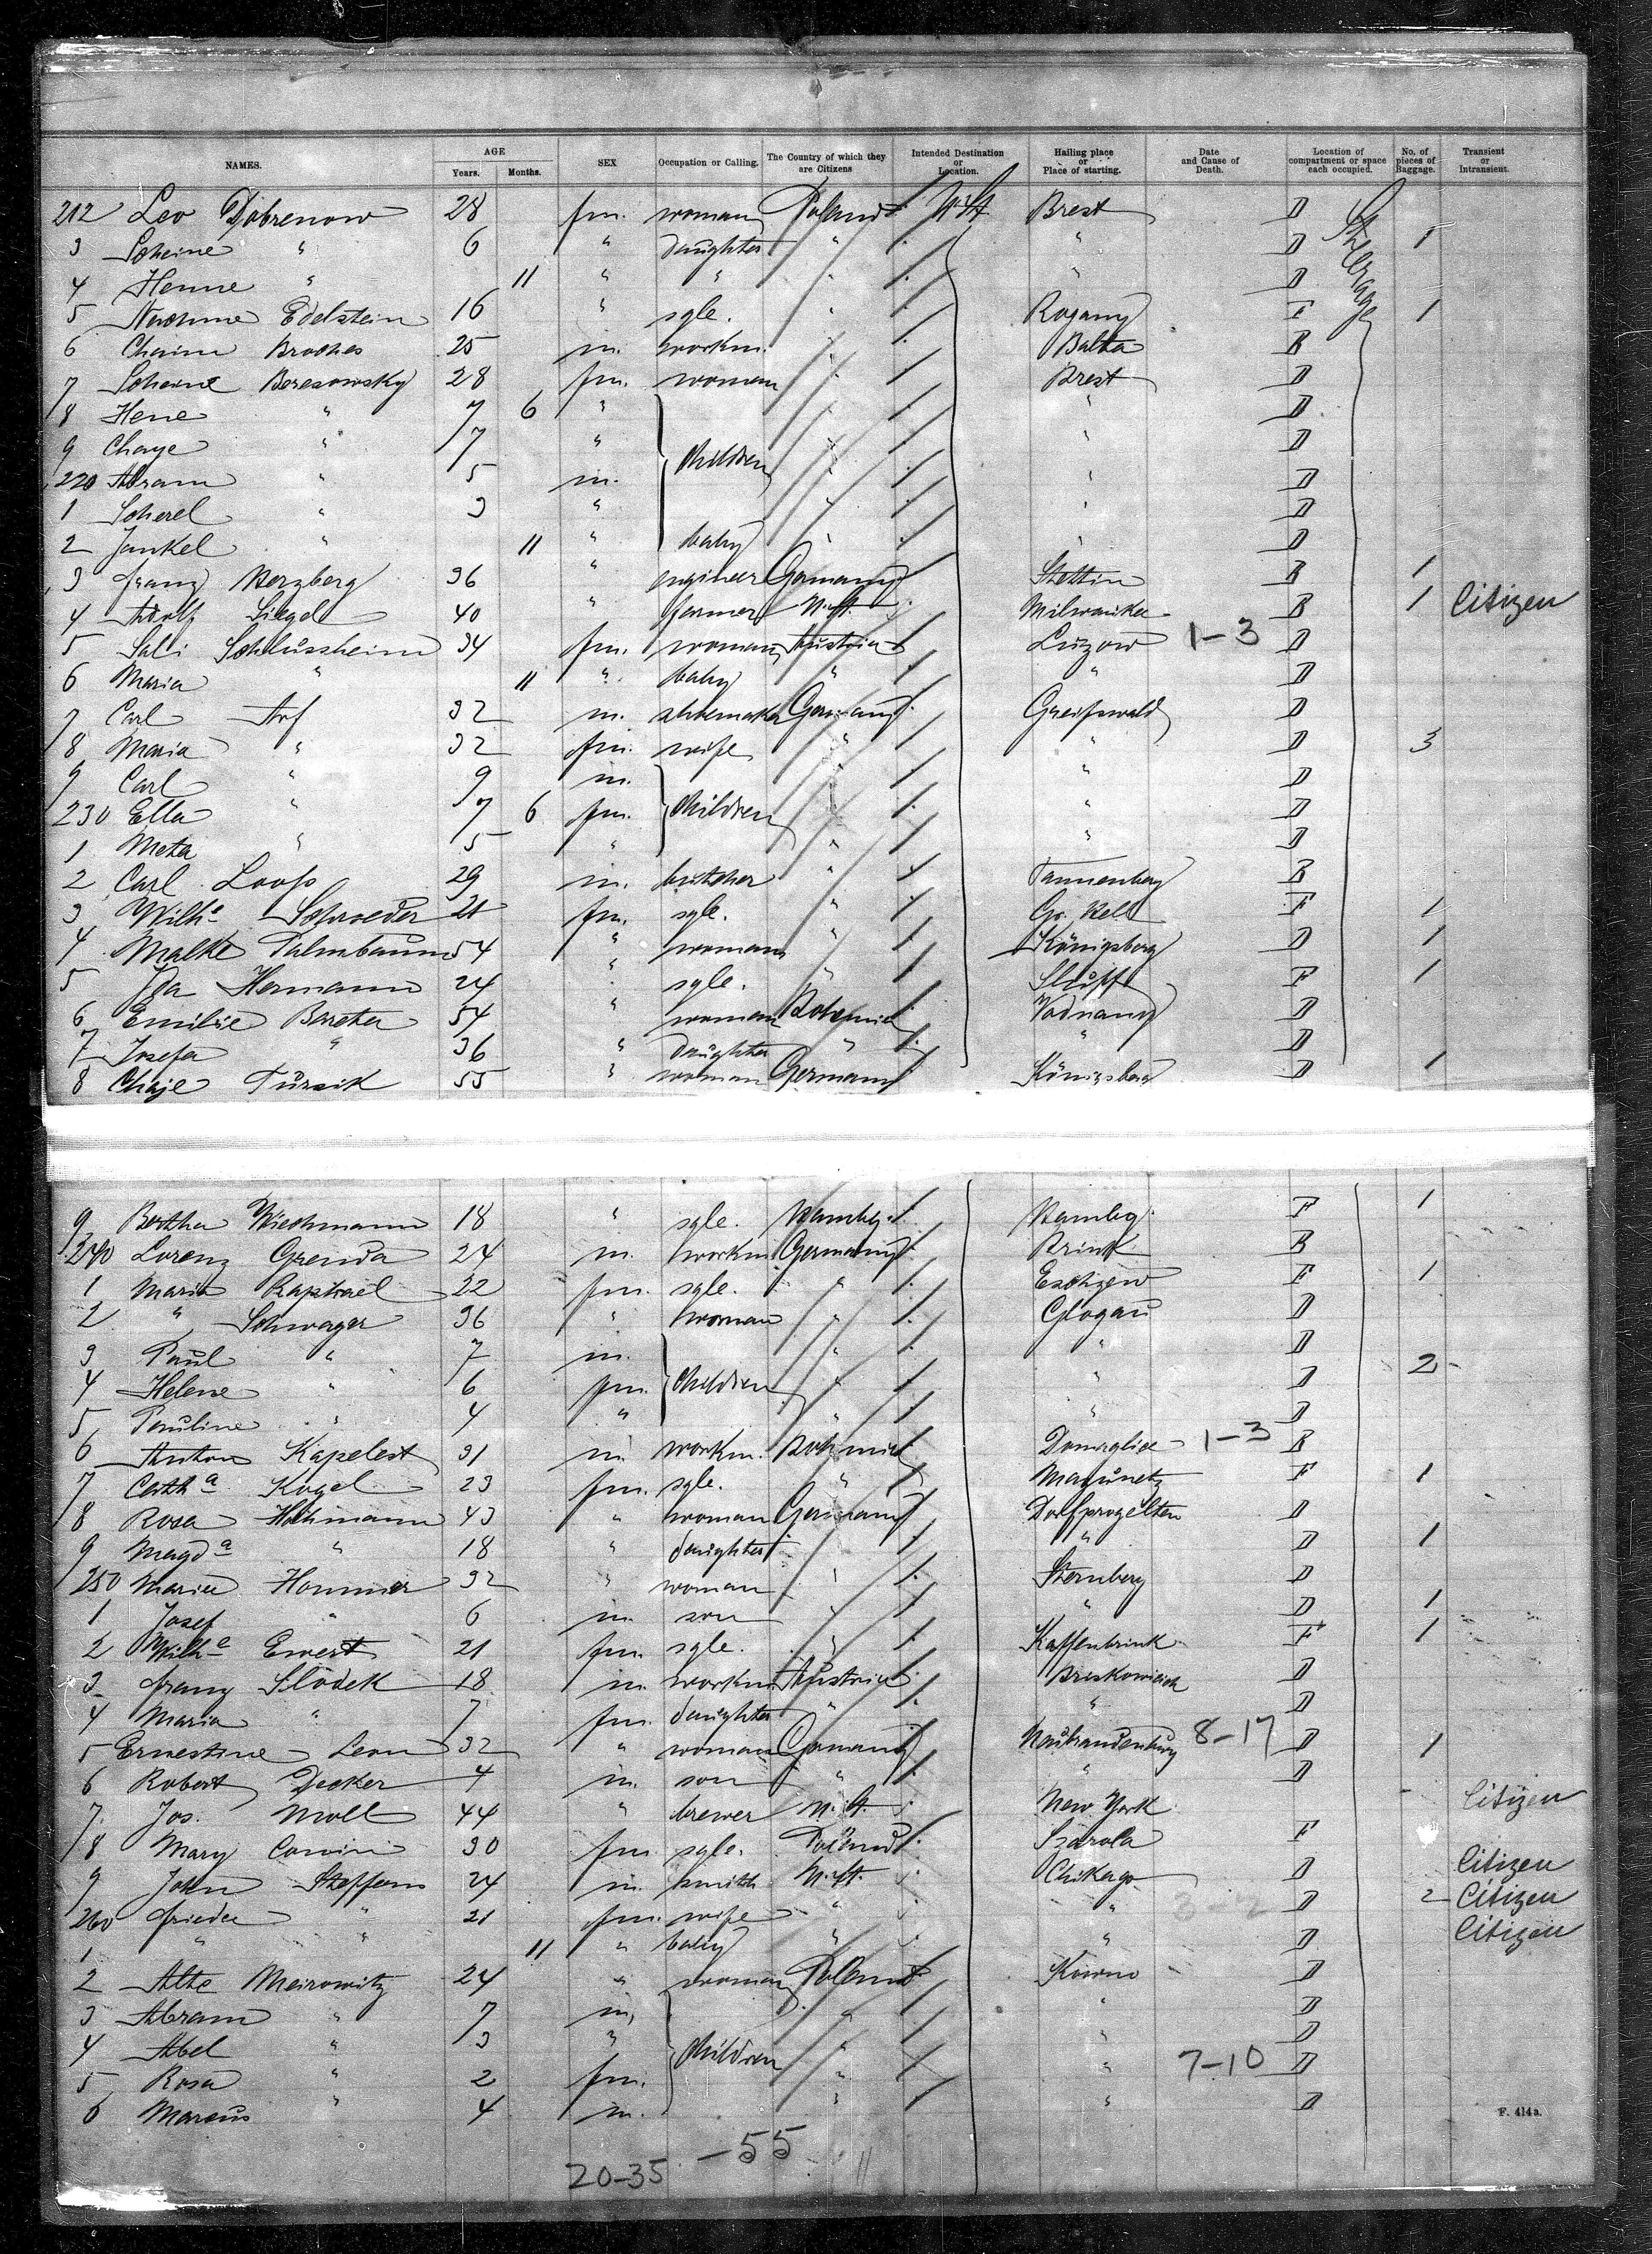 NAMES. AGE Years. Months. SEX Occupation or Calling. The Country of which they are Citizens Intended Destination or Location. Hailing place or Place of starting. Date and Cause of Death. Location of compartment or space each occupied. No. of pieces of Baggage. Transient or Intransient.
212 Leo Dobrenow 28 fm. woman Poland U.St. Brest D Steerage
3 Scheine " 6 " daughter " " D 1
4 Henne " 11 " " " " D
5 Nechme Edelstein 16 " sgle. " Rozany F 1
6 Chaim Broches 25 m. workm. " Balta B
7 Scheine Beresowsky 28 fm. woman " Brest D
8 Hene " 7 6 " children " " D
9 Chaye " 7 " " " D
220 Abram " 5 m. " " D
1 Scherel " 3 " " " D
2 Jankel " 11 " baby " " D
3 Franz Herzberg 36 " engineer Germany Stettin B 1
4 Adolf Siegel 40 " farmer U.St. Milwaukee B 1 Citizen
5 Sali Schlüssheim 34 fm. woman Austria Luzow 1-3 D
6 Maria " 11 " baby " " D
7 Carl Arf 32 m. shoemaker Germany Greifswald D
8 Maria " 32 fm. wife " " D 3
9 Carl " 9 m. children " " D
230 Ella " 7 6 fm. " " D
1 Meta " 5 " " " D
2 Carl Looss 29 m. butcher " Tannenberg B
3 Wilhe Schroeder 21 fm. sgle. " Gr. Kell F 1
4 Malke Palmbaum 54 " woman " Königsberg D 1
5 Ida Hermann 24 " sgle. " F 1
6 Emilie Bareta 54 " woman Bohemia Vodnany D
7 Josefa " 36 " daughter " " D
8 Chaje Tursik 55 " woman Germany Königsberg D 1
9 Bertha Wiechmann 18 " sgle. Hambg. Hambg. F 1
240 Lorenz Grenda 24 m. workm. Germany Brink B
1 Maria Raphael 22 fm. sgle. " F 1
2 " Schwager 36 " woman " Glogau D
3 Paul " 7 m. children " " D
4 Helene " 6 fm. " " D 2
5 Pauline " 4 " " " D
6 Anton Kapelest 31 m. workm. Bohmia 1-3 B
7 Catha Kogel 23 fm. sgle. " F 1
8 Rosa Hohmann 43 " woman Germany Dorfprozelten D
9 Magda " 18 " daughter " " D 1
250 Maria Hommer 32 " woman " Sternberg D
1 Josef " 6 m. son " " D 1
2 Wilhe Ewert 21 fm. sgle. " Kaffenbrink F 1
3 Franz Slodek 18 m. workm. Austria D
4 Maria " 7 fm. daughter " " D
5 Ernestine Leon 32 " woman Germany Neubrandenburg 8-17 D 1
6 Robert Decker 4 m. son " " D
7 Jos. Moll 44 " brewer U.St. New York - Citizen
8 Mary 30 fm. sgle. Poland F
9 John Steffens 24 m. smith U.St. Chikago D Citizen
260 Frieda " 21 fm. wife " " 3-2 D 2 Citizen
1 " " 11 " baby " " D Citizen
2 Alte Meirowitz 24 " woman Poland Kowno D
3 Abram " 7 m. children " " D
4 Abel " 3 " " " D
5 Rosa " 2 fm. " " 7-10 D
6 Marcus " 4 m. " " D
F. 414a.
-55
20-35